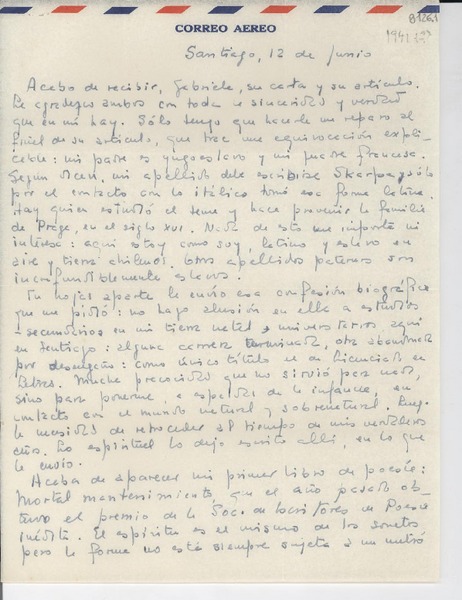 CORREO AEREO
81261
1941
Santiago, 12 de junio
Acabo de recibir, Gabriela, su carta y su artículo.
Le agradezco ambos con toda la sinceridad y verdad
que en mí hay. Sólo tengo que hacerle un reparo al
final de su artículo, que trae una equivocación expli-
cable: mi padre es yugoeslavo y mi madre francesa.
Según dicen, mi apellido debe escribirse Skarpa y sólo
por el contacto con lo itálico tomó esa forma latina.
Hay quien estudió el seme y hace provenir la familia
de Praga, en el siglo XVI. Nada de esto me importa ni
interesa: aquí estoy como soy, latino y eslavo en
aire y tierra chilenos. Otros apellidos paternos son
inconfundiblemente eslavos.
En hojas aparte le envío esa confesión biográfica
que me pidió: no hago alusión en ella a estudios
-secundarios en mi tierra natal y universitarios, aquí
en Santiago: alguna carrera terminada, otra abandonada
por desengaño: como único título el de Licenciado en
Letras. Mucha precocidad que no sirvió para nada,
sino para ponerme, a espaldas de la infancia, en
contacto con el mundo natural y sobrenatural. Luego
la necesidad de retroceder al tiempo de mis verdaderos
años. Lo espiritual lo dejo escrito allí, en lo que
le envío.
Acaba de aparecer mi primer libro de poesía:
Mortal mantenimiento, que el año pasado ob-
tuvo el premio de la Soc. de Escritores de Poesía
inédita. El espíritu es el mismo de los sonetos
pero la forma no está siempre sujeta a un metro